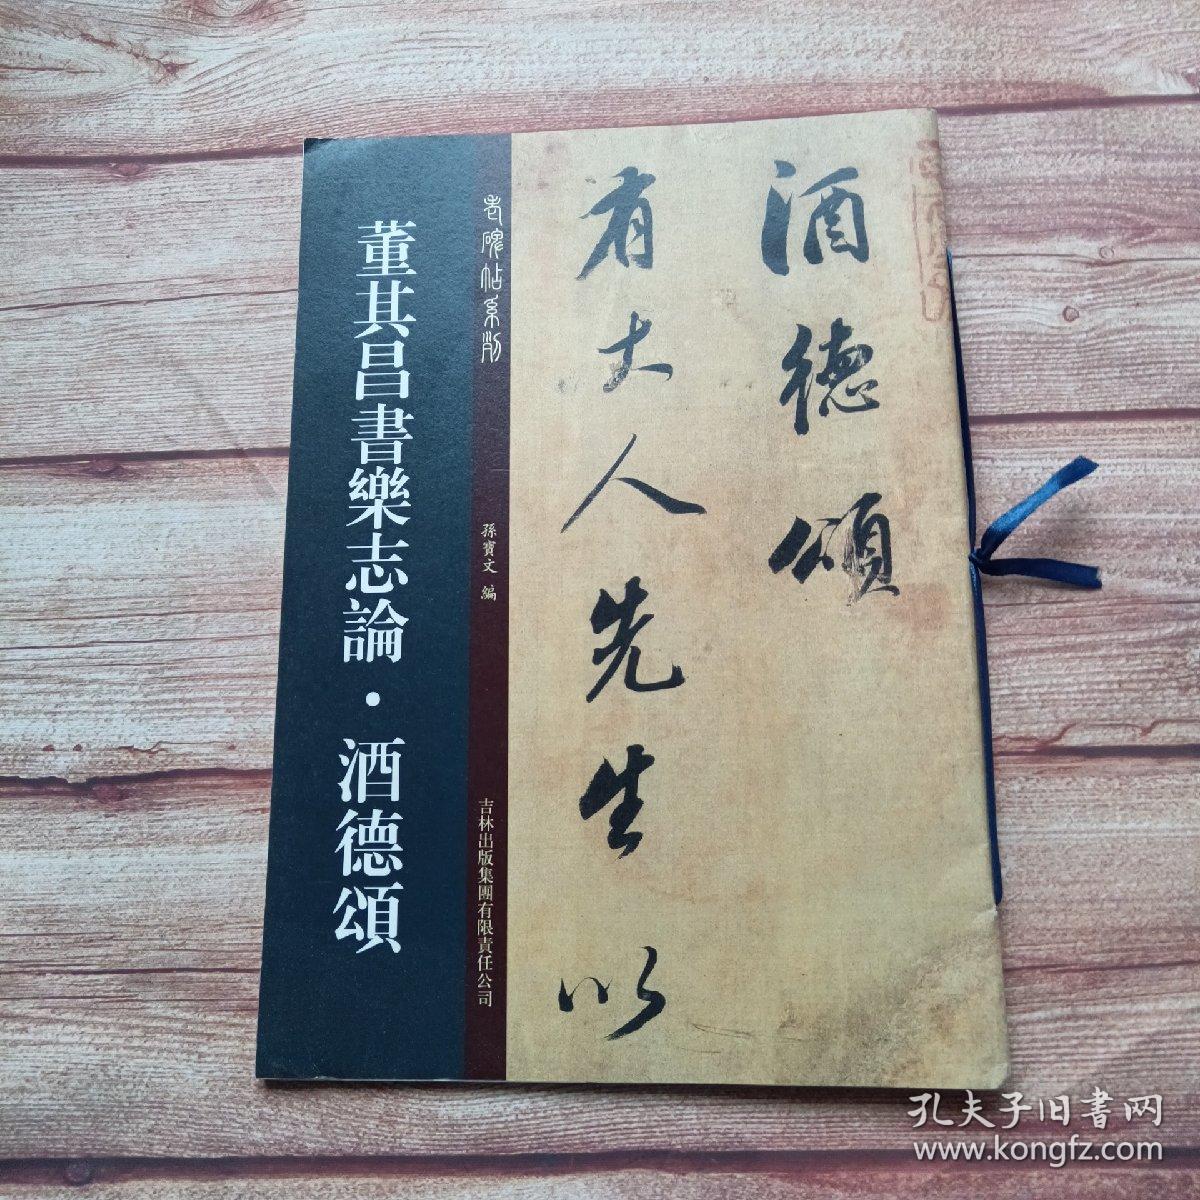 酒德頌
有大人先生以
老碑帖系列
孫寶文 編
吉林出版集團有限責任公司
董其昌書樂志論·酒德頌
孔夫子旧書网
www.kongfz.com